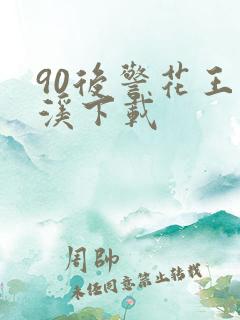 90後警花王
溪下載
周帥
未任同意禁止转载